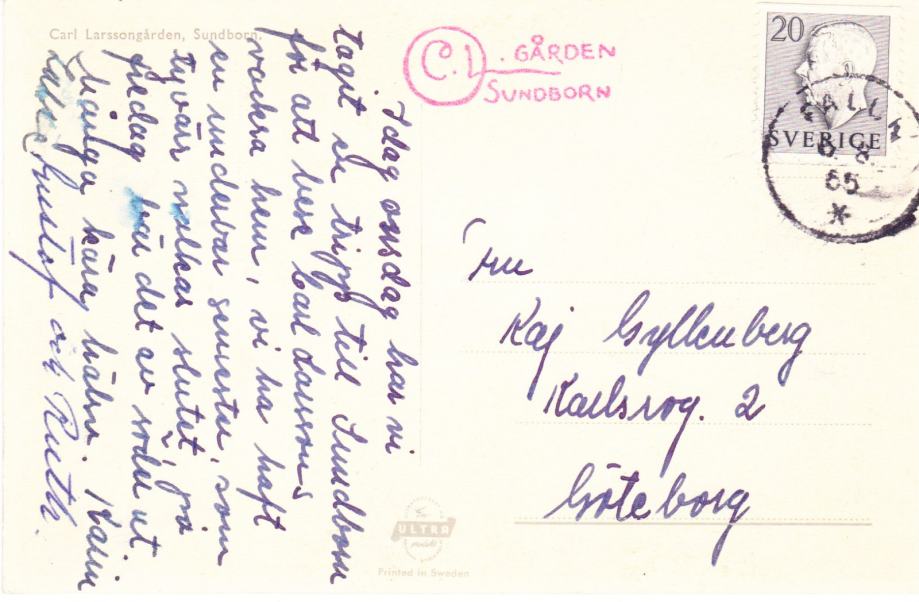 Carl Larssongården, Sundborn.
C.L. GÅRDEN
SUNDBORN
20
SVERIGE
FALUN
65
Idag onsdag har vi
tagit en tripp till Sundborn
för att bese Carl Larssons
vackra hem, vi ha haft
en underbar semester, som
tyvärr nalkas slutet, på
fredag bär det av söder ut.
Många kära hälsn. Karin
Gustaf och Ruth.
Fru
Kaj Gyllenberg
Karlsrog. 2
Göteborg
ULTRA
Printed in Sweden